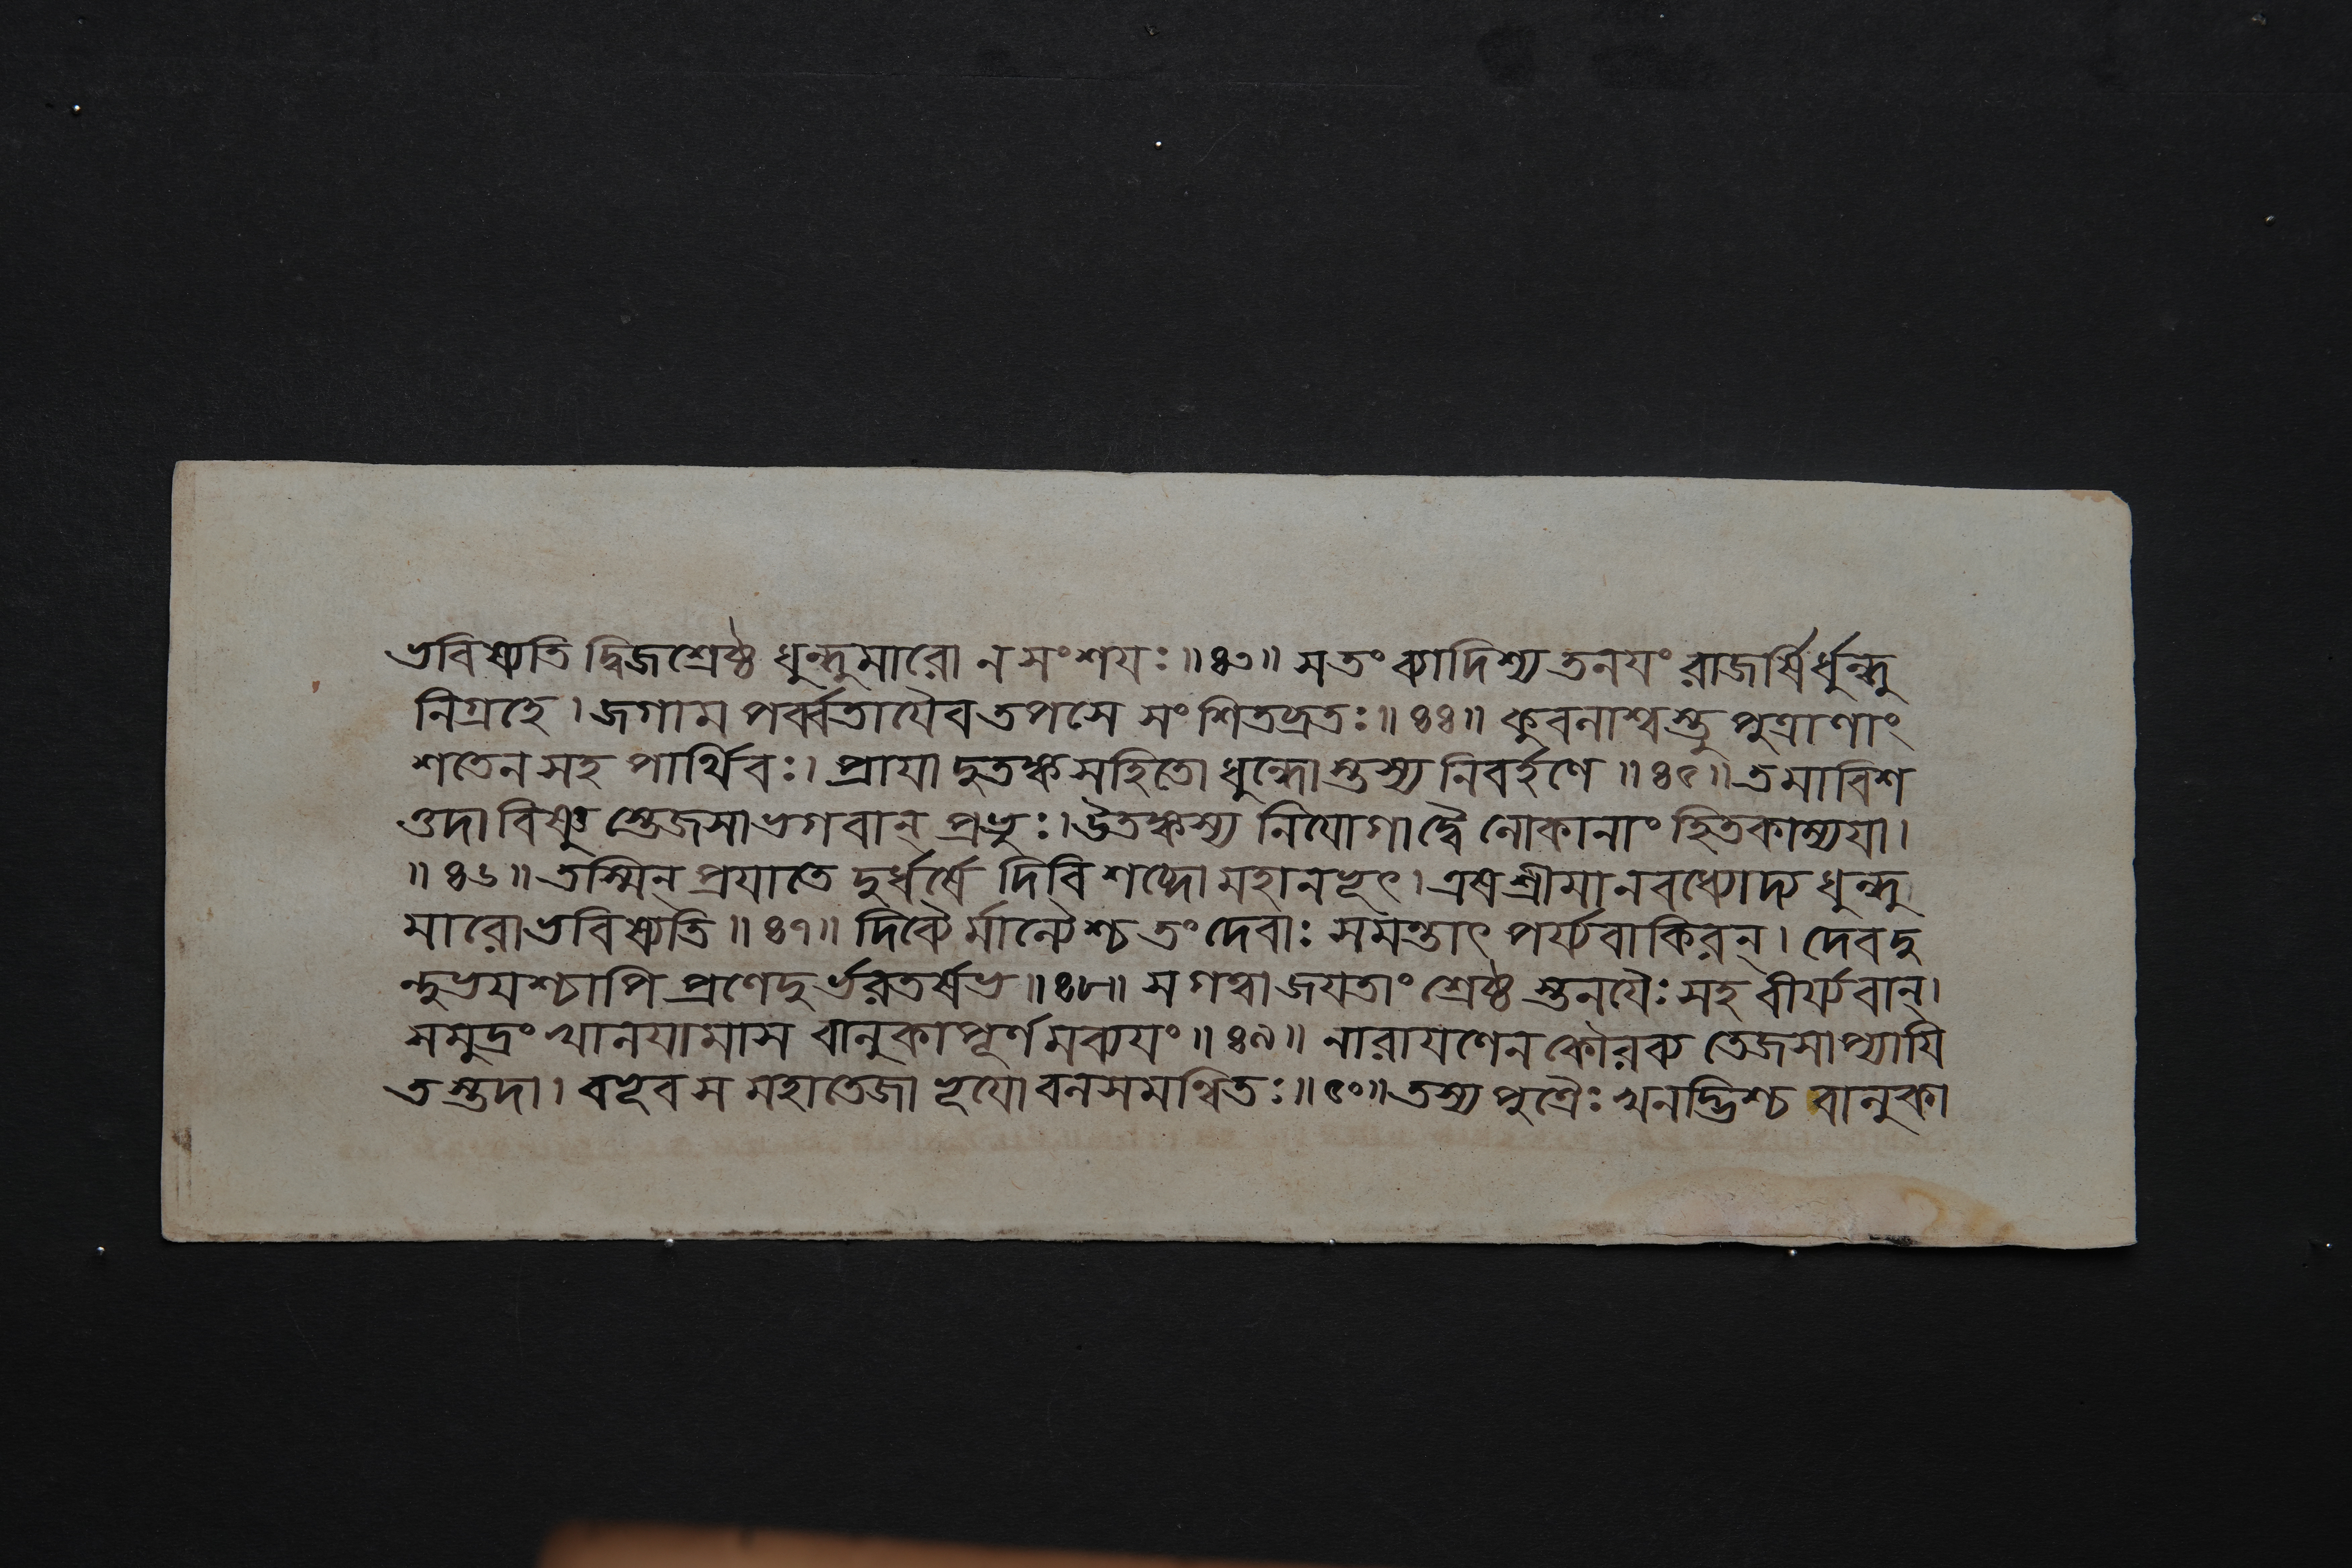 ভবিষ্যতি দ্বিজশ্রেষ্ঠ ধুন্দুমারো ন সংশযঃ॥৪৩॥ স তং ব্যাদিশ্য তনযং রাজর্ষির্ধুন্দু
নিগ্রহে। জগাম পর্ব্বতাযৈব তপসে সংশিতব্রতঃ॥৪৪॥ কুবলাশ্বস্তু পুত্রাণাং
শতেন সহ পার্থিবঃ। প্রাযাদুতঙ্কসহিতো ধুন্দোস্তস্য নিবর্হণে॥৪৫॥ তমাবিশ
ত্তদা বিষ্ণুস্তেজসা ভগবান্ প্রভুঃ। উতঙ্কস্য নিযোগাদ্বৈ লোকানাং হিতকাম্যযা।
॥৪৬॥ তস্মিন্ প্রযাতে দুর্ধর্ষে দিবি শব্দো মহানভূৎ। এষ শ্রীমানবধ্যোদ্য ধুন্দু
মারো ভবিষ্যতি॥৪৭॥ দিব্যৈর্মাল্যৈশ্চ তং দেবাঃ সমন্তাৎ পর্য্যবাকিরন্। দেবদু
ন্দুভযশ্চাপি প্রণেদুর্ভরতর্ষভ॥৪৮॥ স গত্বা জযতাং শ্রেষ্ঠস্তনযৈঃ সহ বীর্য্যবান্।
সমুদ্রং খানযামাস বালুকাপূর্ণমব্যযং॥৪৯॥ নারাযণেন কৌরব্য তেজসাপ্যাযি
তস্তদা। বভূব স মহাতেজা ভূযো বলসমন্বিতঃ॥৫০॥ তস্য পুত্রৈঃ খনদ্ভিশ্চ বালুকা